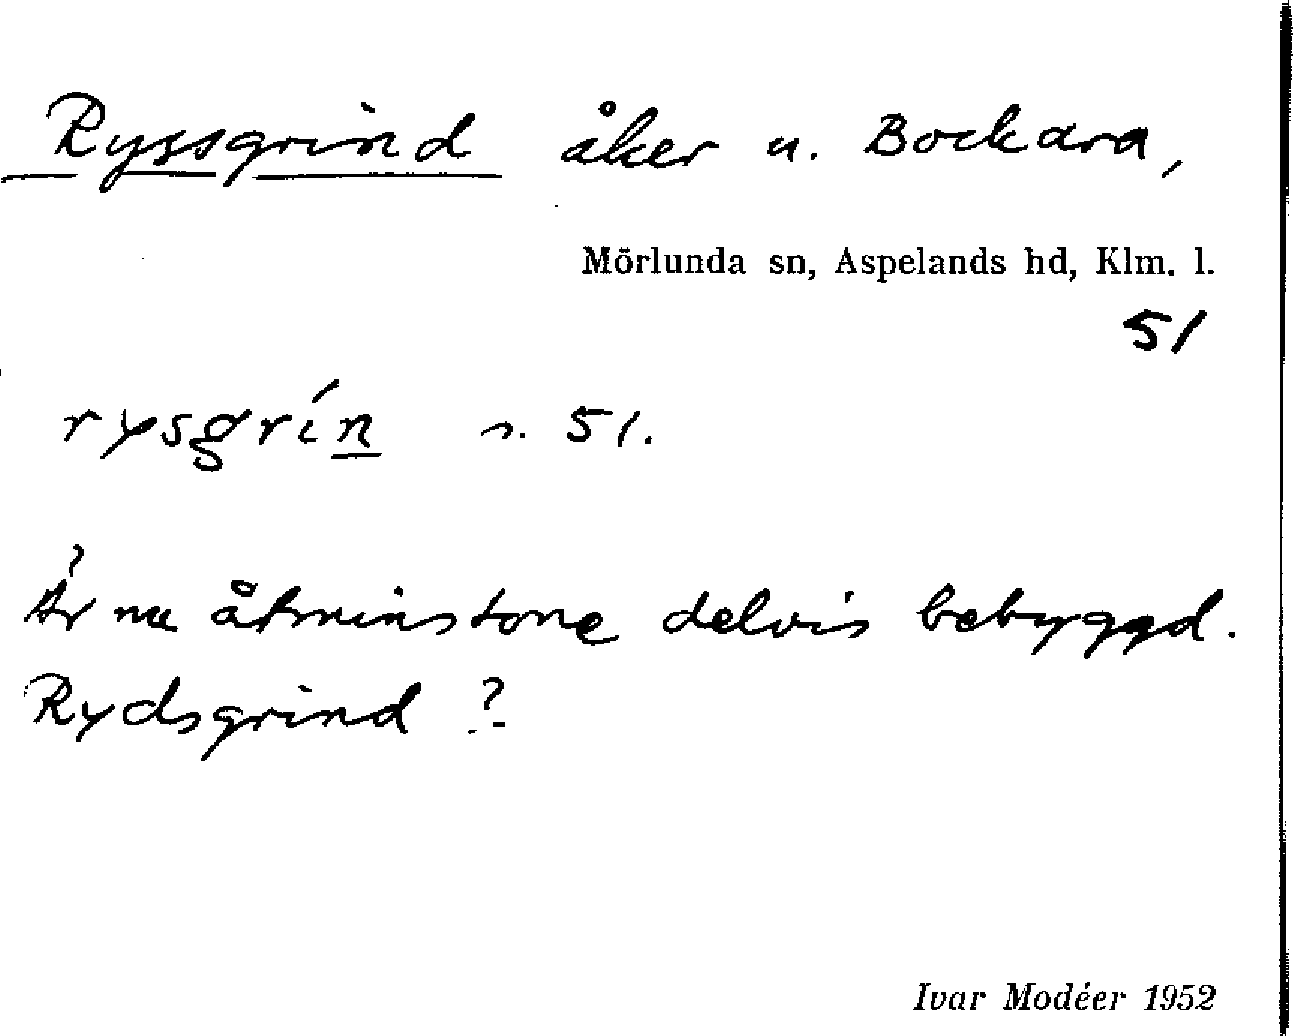 Ryssgrind åker u. Bockara,
Mörlunda sn, Aspelands hd, Klm. l.
51
rysgrín s. 51.
Är nu åtminstone delvis bebyggd.
Rydsgrind ?
Ivar Modéer 1952